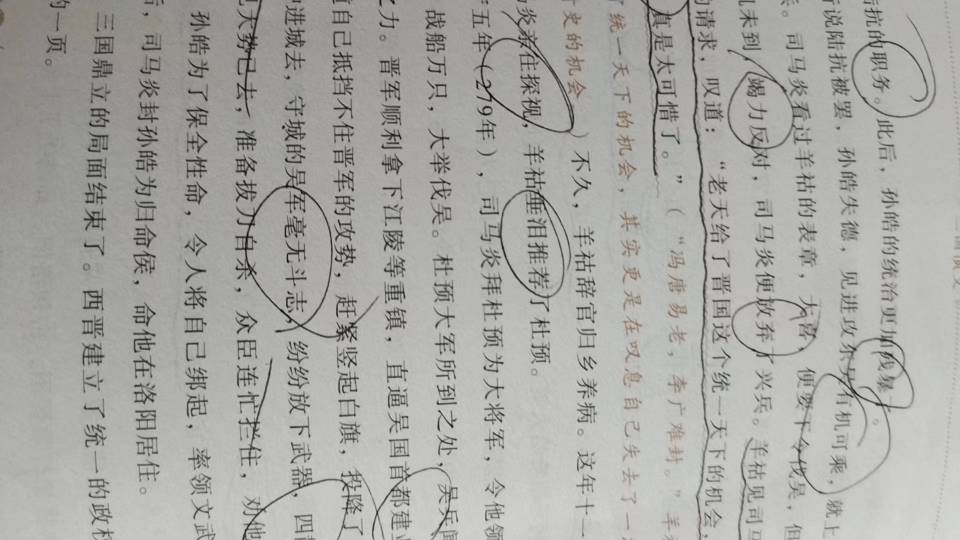 抗的职务。此后，孙皓的统治更加残暴了。
说陆抗被罢，孙皓失德，见进攻东吴有机可乘，就上
司马炎看过羊祜的表章，大喜，便要下令伐吴，但
机未到，竭力反对，司马炎便放弃了兴兵。羊祜见司马
的请求，叹道：“老天给了晋国这个统一天下的机会，
真是太可惜了。”（“冯唐易老，李广难封。”羊祜
统一天下的机会，其实更是在叹息自己失去了一
史的机会）不久，羊祜辞官归乡养病。这年十一
炎亲往探视，羊祜垂泪推荐了杜预。
五年（279年），司马炎拜杜预为大将军，令他领
战船万只，大举伐吴。杜预大军所到之处，吴兵闻
之力。晋军顺利拿下江陵等重镇，直逼吴国首都建业
自己抵挡不住晋军的攻势，赶紧竖起白旗，投降了
进城去，守城的吴军毫无斗志，纷纷放下武器，四散
见大势已去，准备拔刀自杀，众臣连忙拦住，劝他
孙皓为了保全性命，令人将自己绑起，率领文武
后，司马炎封孙皓为归命侯，命他在洛阳居住。
三国鼎立的局面结束了。西晋建立了统一的政权
的一页。